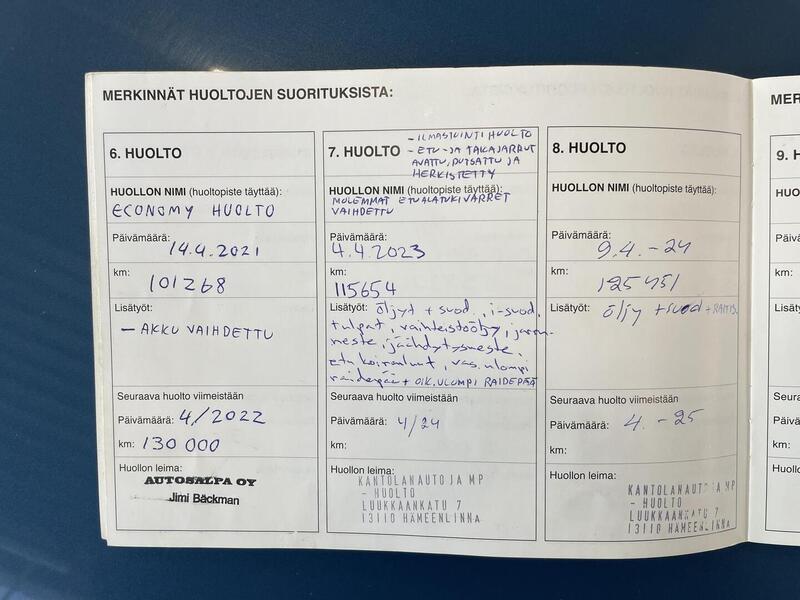 MERKINNÄT HUOLTOJEN SUORITUKSISTA:
6. HUOLTO
HUOLLON NIMI (huoltopiste täyttää):
ECONOMY HUOLTO
Päivämäärä:
14.4.2021
km:
101268
Lisätyöt:
- AKKU VAIHDETTU
Seuraava huolto viimeistään
Päivämäärä: 4/2022
km: 130 000
Huollon leima:
AUTOSALPA OY
Jimi Bäckman
7. HUOLTO
- ILMASTOINTI HUOLTO
- ETU-JA TAKAJARRUT
AVATTU, PUTSATTU JA
HERKISTETTY
HUOLLON NIMI (huoltopiste täyttää):
MOLEMMAT ETUALATUKIVARRET
VAIHDETTU
Päivämäärä:
4.4.2023
km:
115654
Lisätyöt: öljyt + suod, i-suod.
tulpat, vaihteistoöljy, jarru-
neste, jäähdytysneste,
etu koiranluut, vas. ulompi
raidepää + OIK. ULOMPI RAIDEPÄÄ
Seuraava huolto viimeistään
Päivämäärä: 4/24
km:
Huollon leima:
KANTOLANAUTO JA MP
- HUOLTO
LUUKKAANKATU 7
13110 HÄMEENLINNA
8. HUOLTO
HUOLLON NIMI (huoltopiste täyttää):
Päivämäärä:
9.4.-24
km:
125451
Lisätyöt: öljy + suod + RAITIS.
Seuraava huolto viimeistään
Päivämäärä: 4.-25
km:
Huollon leima:
KANTOLANAUTO JA MP
- HUOLTO
LUUKKAANKATU 7
13110 HÄMEENLINNA
MER
9. H
HUO
Päiv
km:
Lisä
Seu
Päiv
km:
Huo